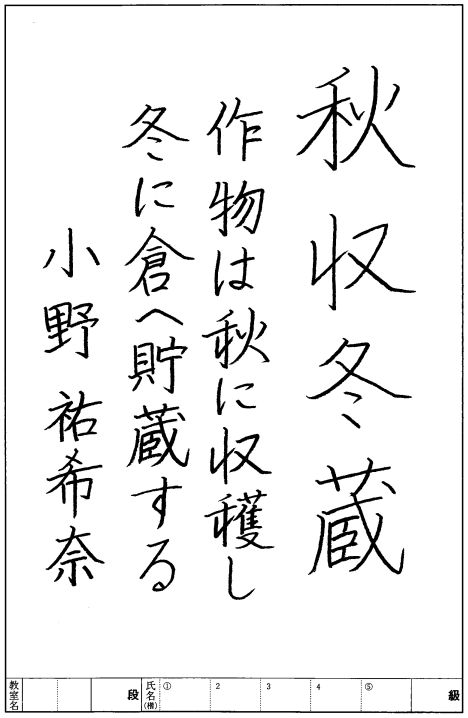 秋収冬蔵
作物は秋に収穫し
冬に倉へ貯蔵する
小野祐希奈
教室名 段 氏名(横) ① 2 3 4 ⑤ 級